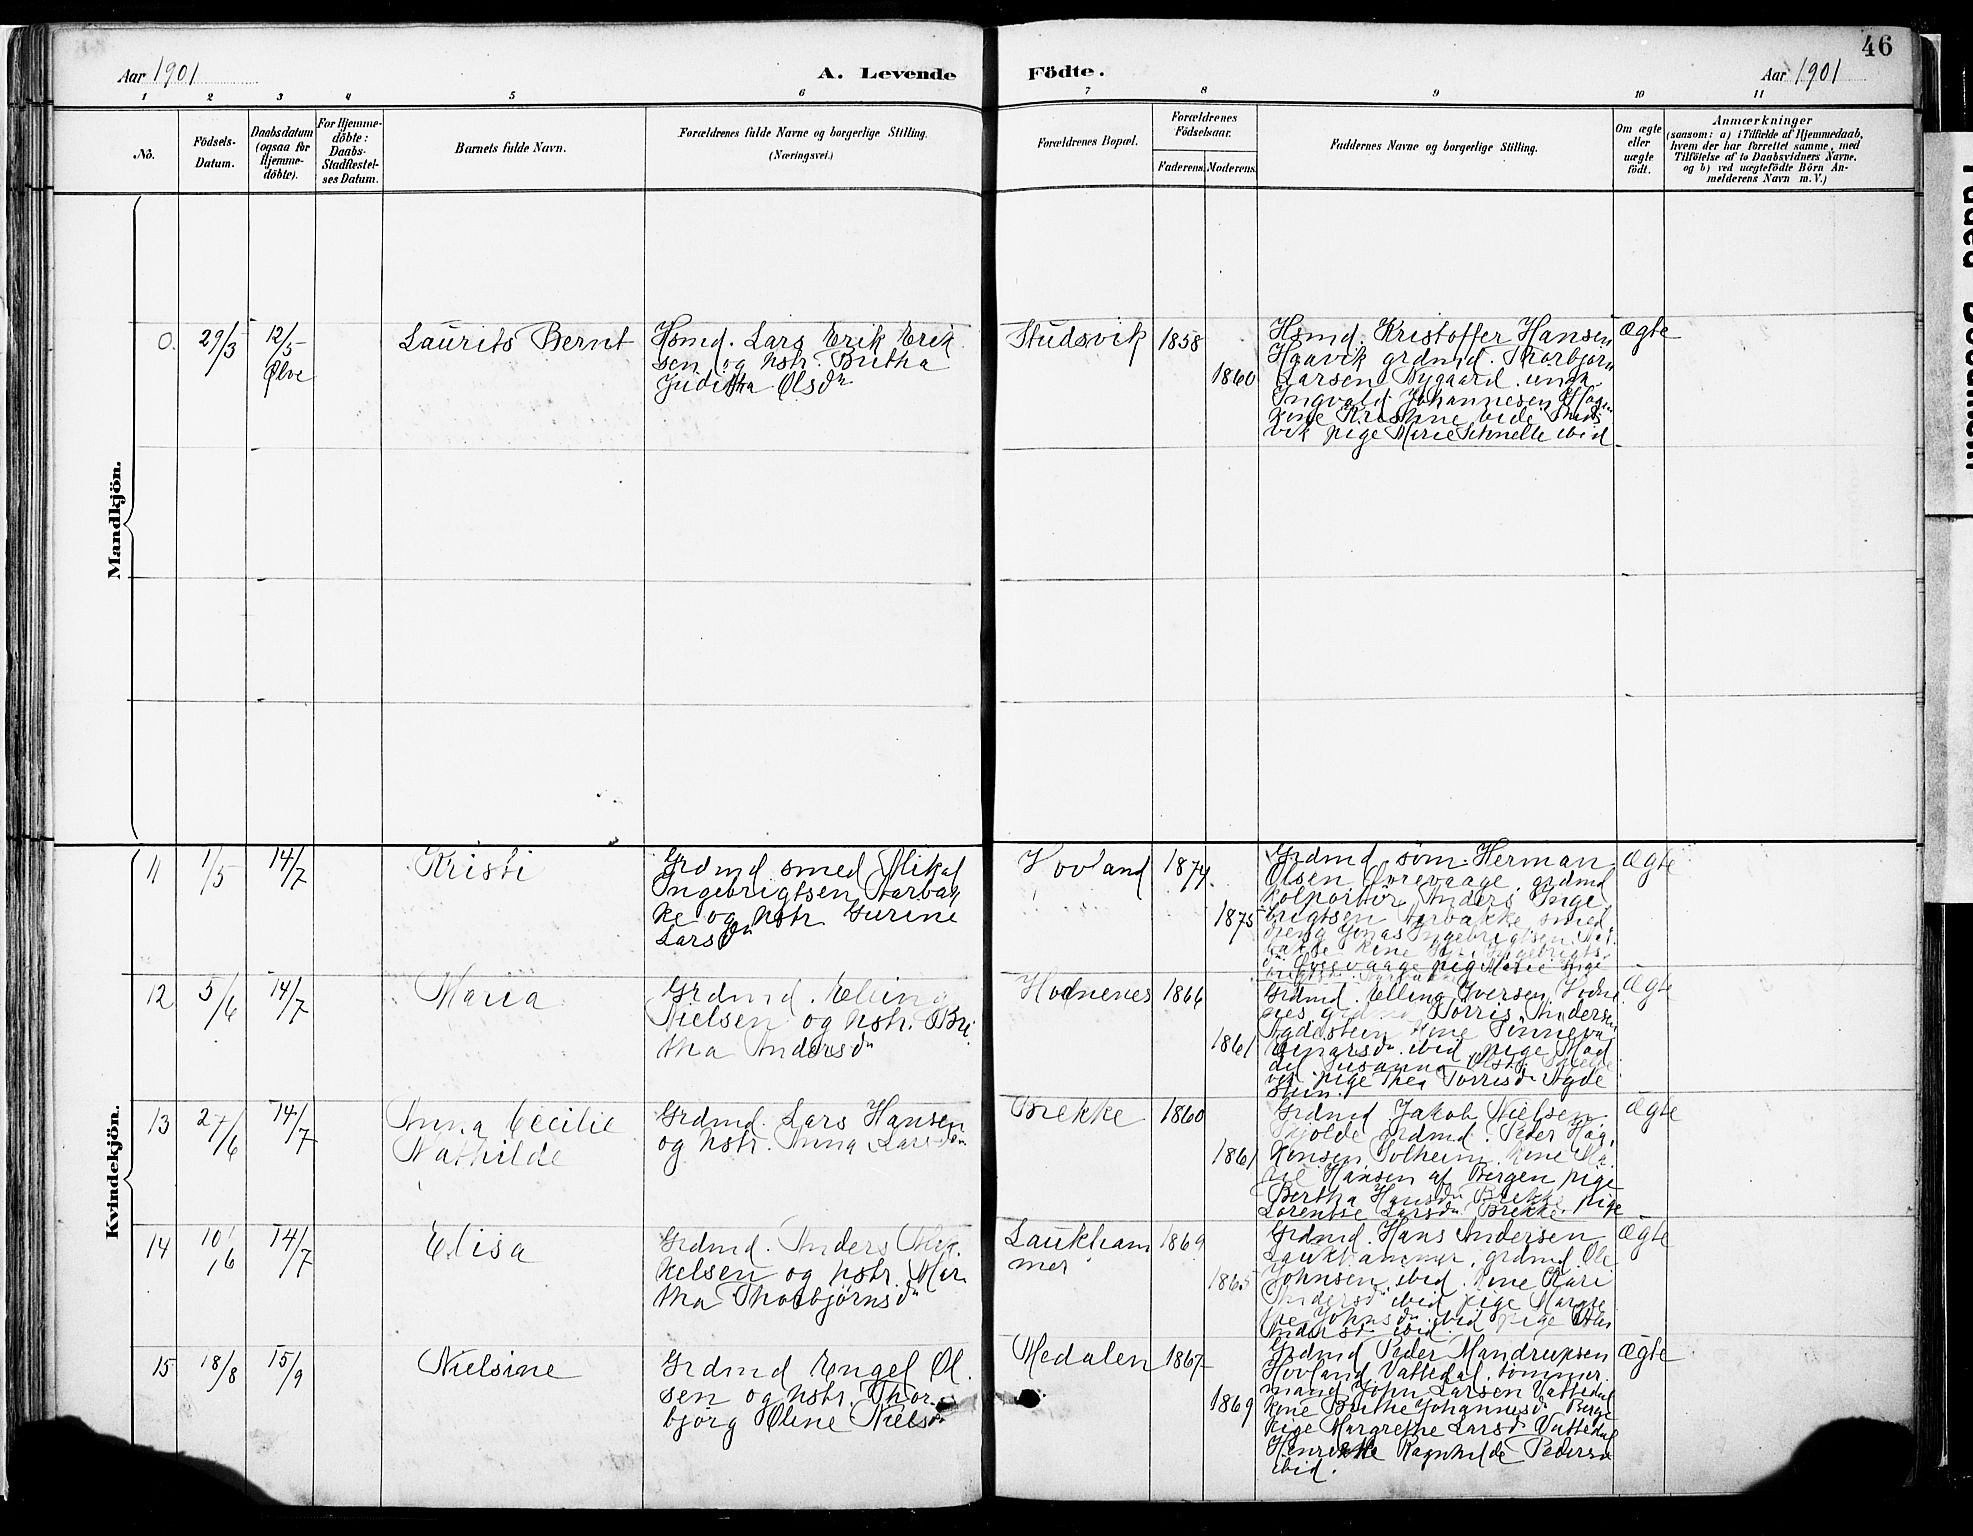 46
Aar 1901 A. Levende Födte. Aar 1901
1 2 3 4 5 6 7 8 9 10 11
No.
Födsels-
Datum.
Daabsdatum
(ogsaa for
Hjemme-
döbte).
For Hjemme-
döbte:
Daabs-
Stadfæstel-
ses Datum.
Barnets fulde Navn.
Forældrenes fulde Navne og borgerlige Stilling.
(Næringsvei.)
Forældrenes Bopæl.
Forældrenes
Födselsaar.
Faderens. Moderens.
Faddernes Navne og borgerlige Stilling.
Om ægte
eller
uægte
födt.
Anmærkninger
(saasom: a) i Tilfælde af Hjemmedaab,
hvem der har forrettet samme, med
Tilföielse af to Daabsvidners Navne.
og b) ved uægtefödte Börn An-
melderens Navn m. V.)
Mandkjön.
0.
29/3
12/5
Ølve
Laurits Bernt
Hsmd. Lars Erik Erik
sen og hstr. Britha
Juditha Olsdr
Studsvik
1858
1860
Hsmd. Kristoffer Hansen
Haavik grdmd. Thorbjørn
Larsen Nygaard. ungk.
Ingvald Johannesen
kone Kristine
vik pige Marie ibid
ægte
Kvindekjön.
11
1/5
14/7
Kristi
Grdmd smed Mikal
Ingebrigtsen Aarbak
ke og hstr Gurine
Larsdr
Hovland
1874.
1875
Grdmd. søm. Herman
Olsen Øvrevaage. grdmd
kolportør Anders Inge
brigtsen Aarbakke smed
dreng Jonas Ingebrigtsen
kone
Øvrevaage pige Marie Inge
ægte
12
5/6
14/7
Maria
Grdmd. Elling
Nielsen og hstr. Bri
tha Andersdr
Hodnenes
1866
1861
Grdmd. Elling Iversen Hodne
nes Torris Andersen
kone
ibid pige Mad
pige Thea Torrisdr Agde
stein.
ægte
13
27/6
14/7
Anna Cecilie
Mathilde
Grdmd. Lars Hansen
og hstr. Anna Larsdr
Brekke
1860
1861
Grdmd Jakob Nielsen
grdmd. Peder Haa
konsen Solheim. kone
Hansen af Bergen pige
Bertha Hansdr Brekke pige
Lorentse Larsdr Brekke. pige
ægte
14
10/6
14/7
Elisa
Grdmd. Anders Mik
kelsen og hstr. Mar
tha Thorbjørnsdr
Laukham
mer
1869
1865
Grdmd. Hans Andersen
Laukhammer, grdmd. Ole
Johnsen ibid. kone Kari
Andersdr ibid pige Margre
the Johnsdr ibid pige
Andersdr ibid.
ægte
15
18/8
15/9
Nielsine
Grdmd Engel Ol
sen og hstr. Thor
bjørg Oline Nielsdr
Medalen
1867
1869
Grdmd Peder Mandrupsen
Hovland Vattedal. tømmer
mand John Larsen Vattedal
kone Brithe Johannesdr Berge
pige Margrethe Larsdr Vattedal
Henrikke Ragnhilde Pedersdr
ibid.
ægte